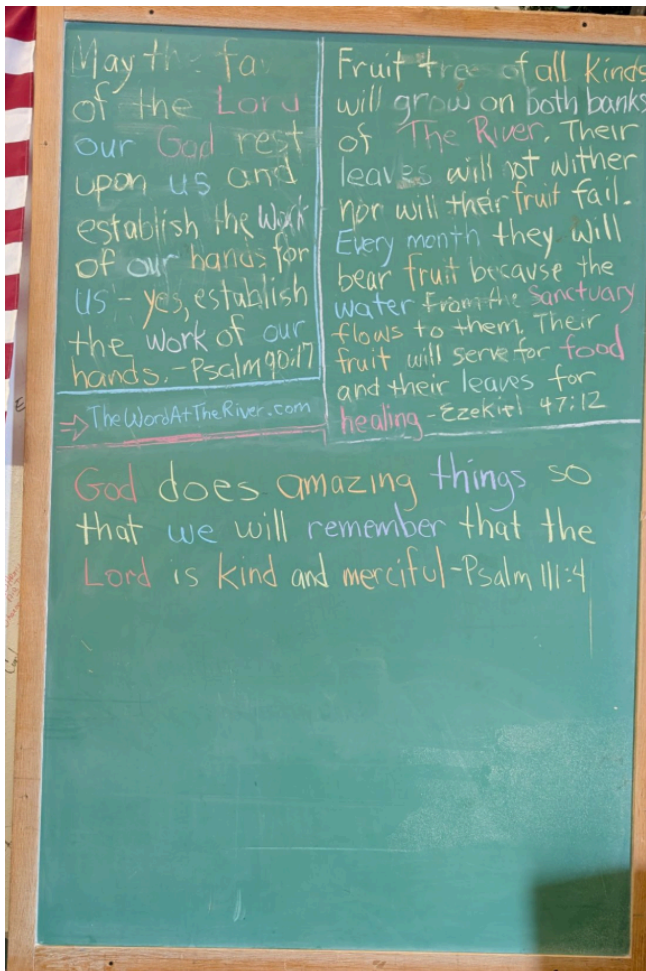 May the fa
of the Lord
our God rest
upon us and
establish the work
of our hands for
us - yes, establish
the work of our
hands. - Psalm 90:17
⇒ TheWordAtTheRiver.com
Fruit trees of all kinds
will grow on both banks
of The River. Their
leaves will not wither
nor will their fruit fail.
Every month they will
bear fruit because the
water from the Sanctuary
flows to them. Their
fruit will serve for food
and their leaves for
healing - Ezekiel 47:12
God does amazing things so
that we will remember that the
Lord is kind and merciful - Psalm 111:4